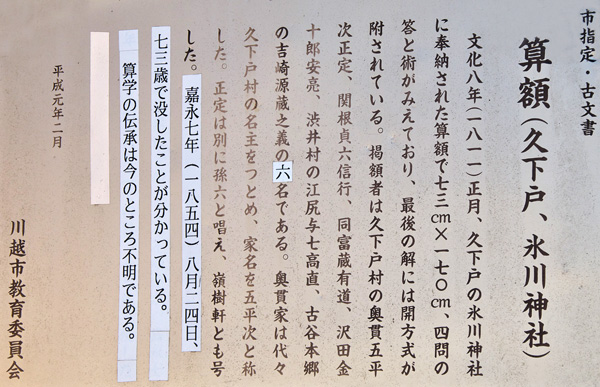 市指定・古文書
算額（久下戸、氷川神社）
文化八年（一八一一）正月、久下戸の氷川神社
に奉納された算額で七三cm×一七〇cm、四問の
答と術がみえており、最後の解には開方式が
附されている。掲額者は久下戸村の奥貫五平
次正定、関根貞六信行、同富蔵有道、沢田金
十郎安亮、渋井村の江尻与七高直、古谷本郷
の吉崎源蔵之義の六名である。奥貫家は代々
久下戸村の名主をつとめ、家名を五平次と称
した。正定は別に孫六と唱え、嶺樹軒とも号
した。嘉永七年（一八五四）八月二四日、
七三歳で没したことが分かっている。
算学の伝承は今のところ不明である。
平成元年二月
川越市教育委員会